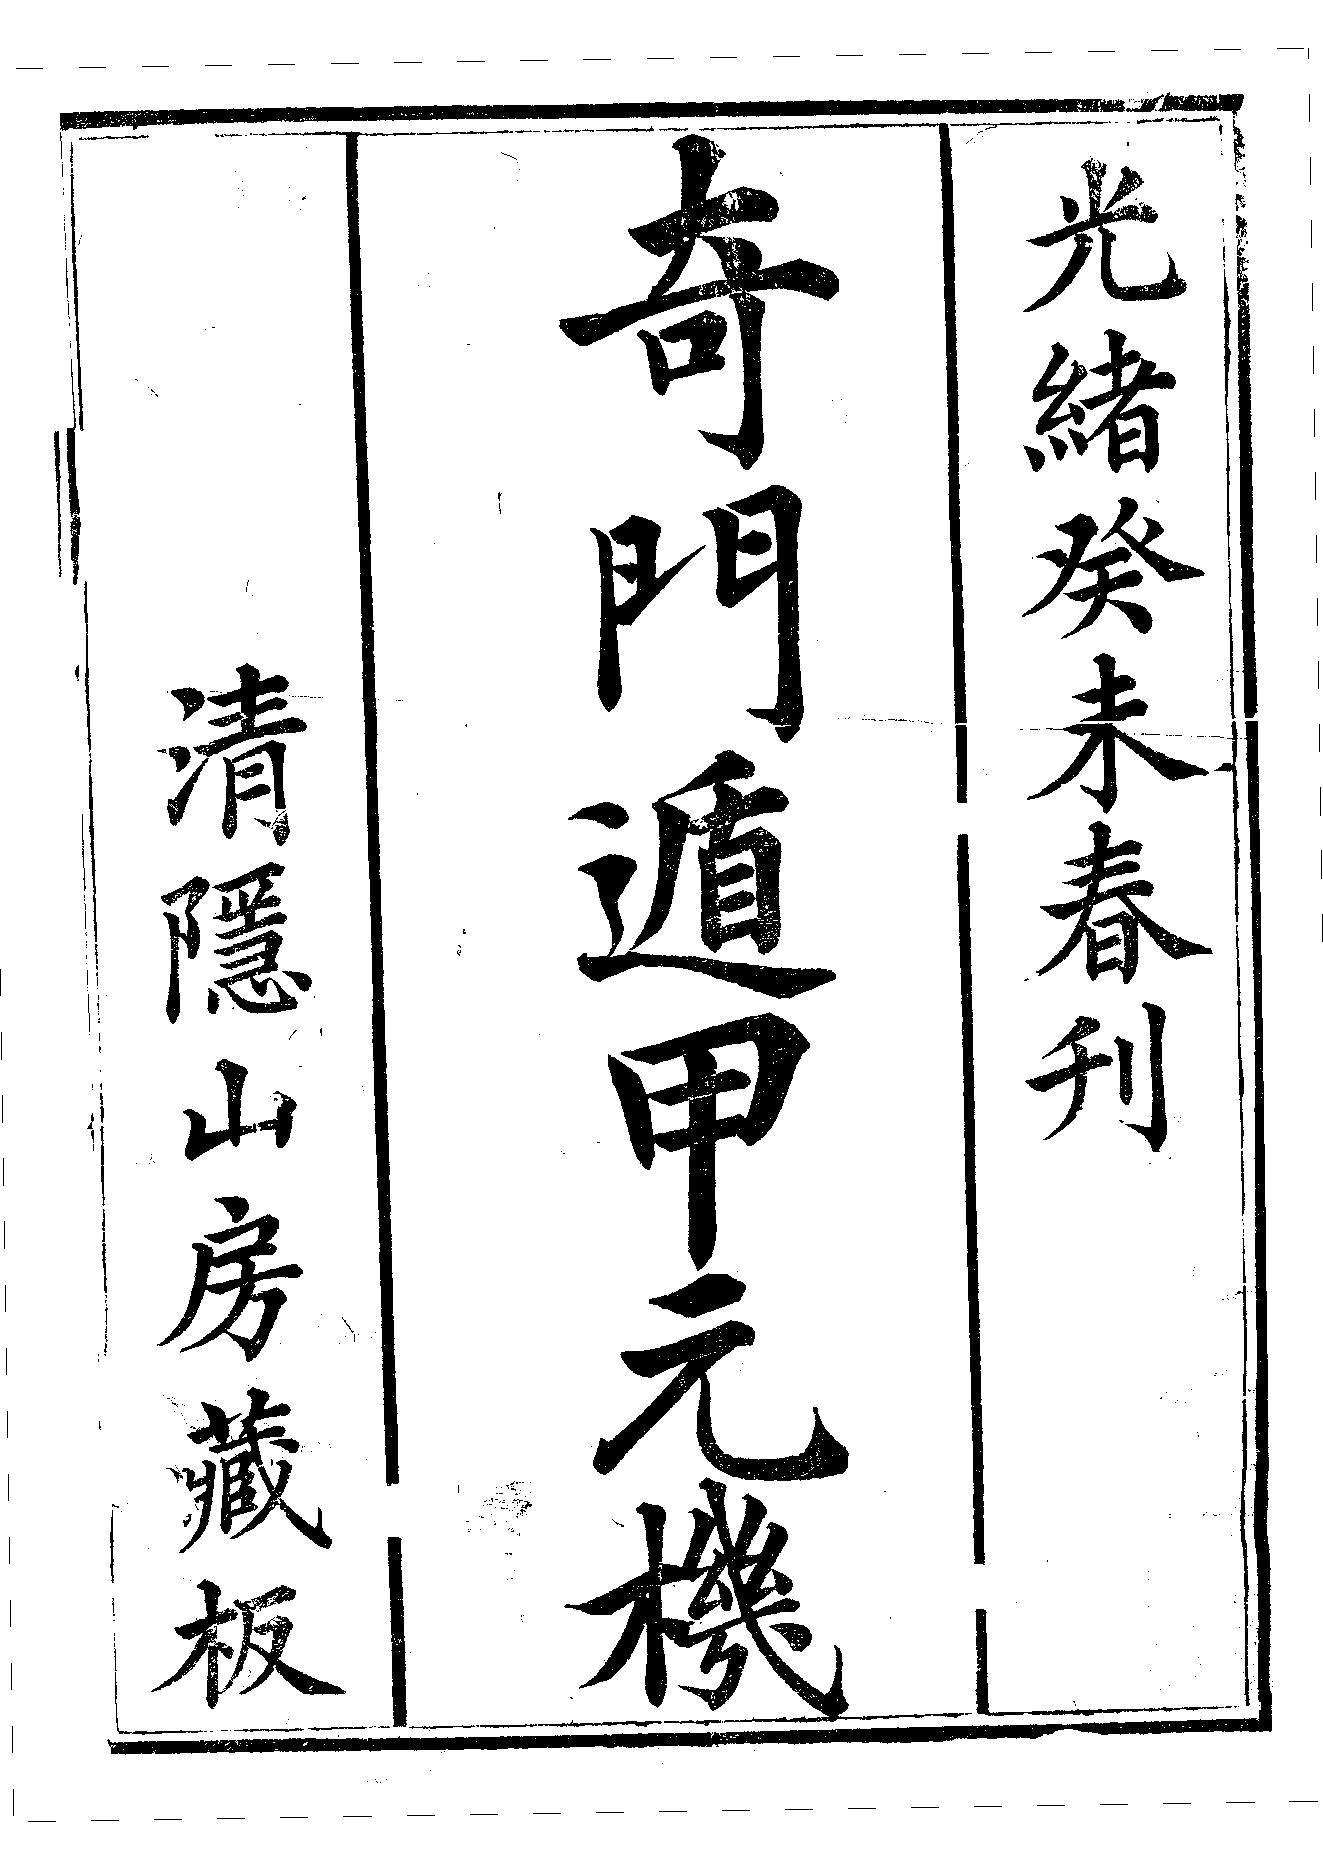 光緒癸未春刋
奇門遁甲元機
清隱山房藏板